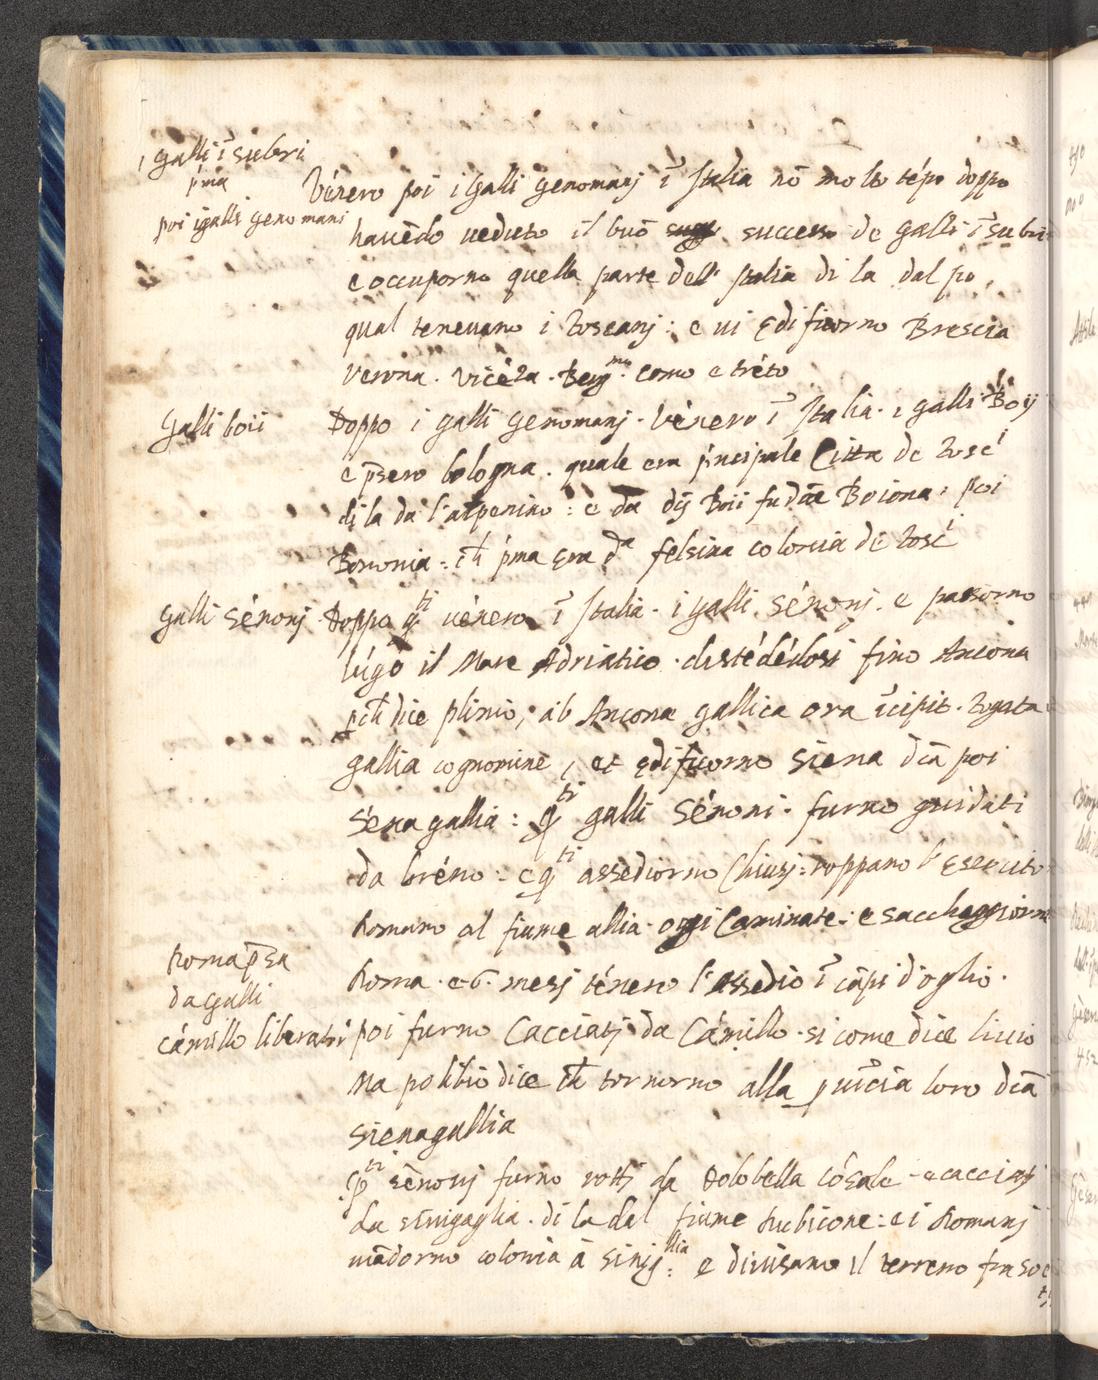 galli ī subri
p̄ma
poi i galli genomani
Vénero poi i galli genomanj ī Italia nō molto tépo doppo
havēdo veduto il buō successo de galli ī subri
e occuporno quella parte dell' Italia di la dal po,
qual tenevano i Toscanj: e vi ędificorno Brescia
Verona. Vicéza. Bergmo. Como e tréto
Galli boii
Doppo i galli genomanj. Vénero ī Italia. i galli Boij
e p̄sero bologna. quale era p̄ncipale Citta de Tosc
di la da l'appenino: e da dij Boii fu dc̄a Boiona, poi
Bononia: ch̄ p̄ma ęra da felsina colonia de Tosc
Galli Sénonj
Doppo qti vénero ī Italia. i galli Sénonj. e passorno
lúgo il Mare Adriatico. distédédosi fino Ancona
pch̄ dice plinio, ab Ancona gallica ora īcipit. Togata
gallia cognomine, et ędificorno Siena dc̄a poi
Séna gallia: qti galli Sénoni. furno guidati
da bréno: e qti assediorno Chiusj: roppano l'Esercito
Romano al fiume allia. oggi Caminate: e saccheggiorno
Roma p̄sa
da galli
Roma. e 6. mesj ténero l'assedio ī cāpidoglio.
cámillo liberator
poi furno Cacciatj da Cámillo. si come dice livio
Ma polibio dice ch̄ tornorno alla p̱vīcia loro dc̄a
Sienagallia
Qti sēnonj furno rottj da Dolobella cósale e cacciatj
da sinigaglia. di la dal fiume Rubicone: e i Romanj
mādorno colonia à Sinigllia: e divisano il terreno fra so